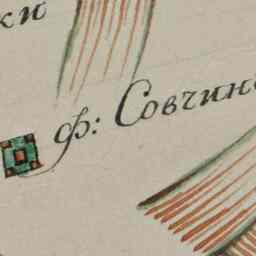 ки
ф: Совчин